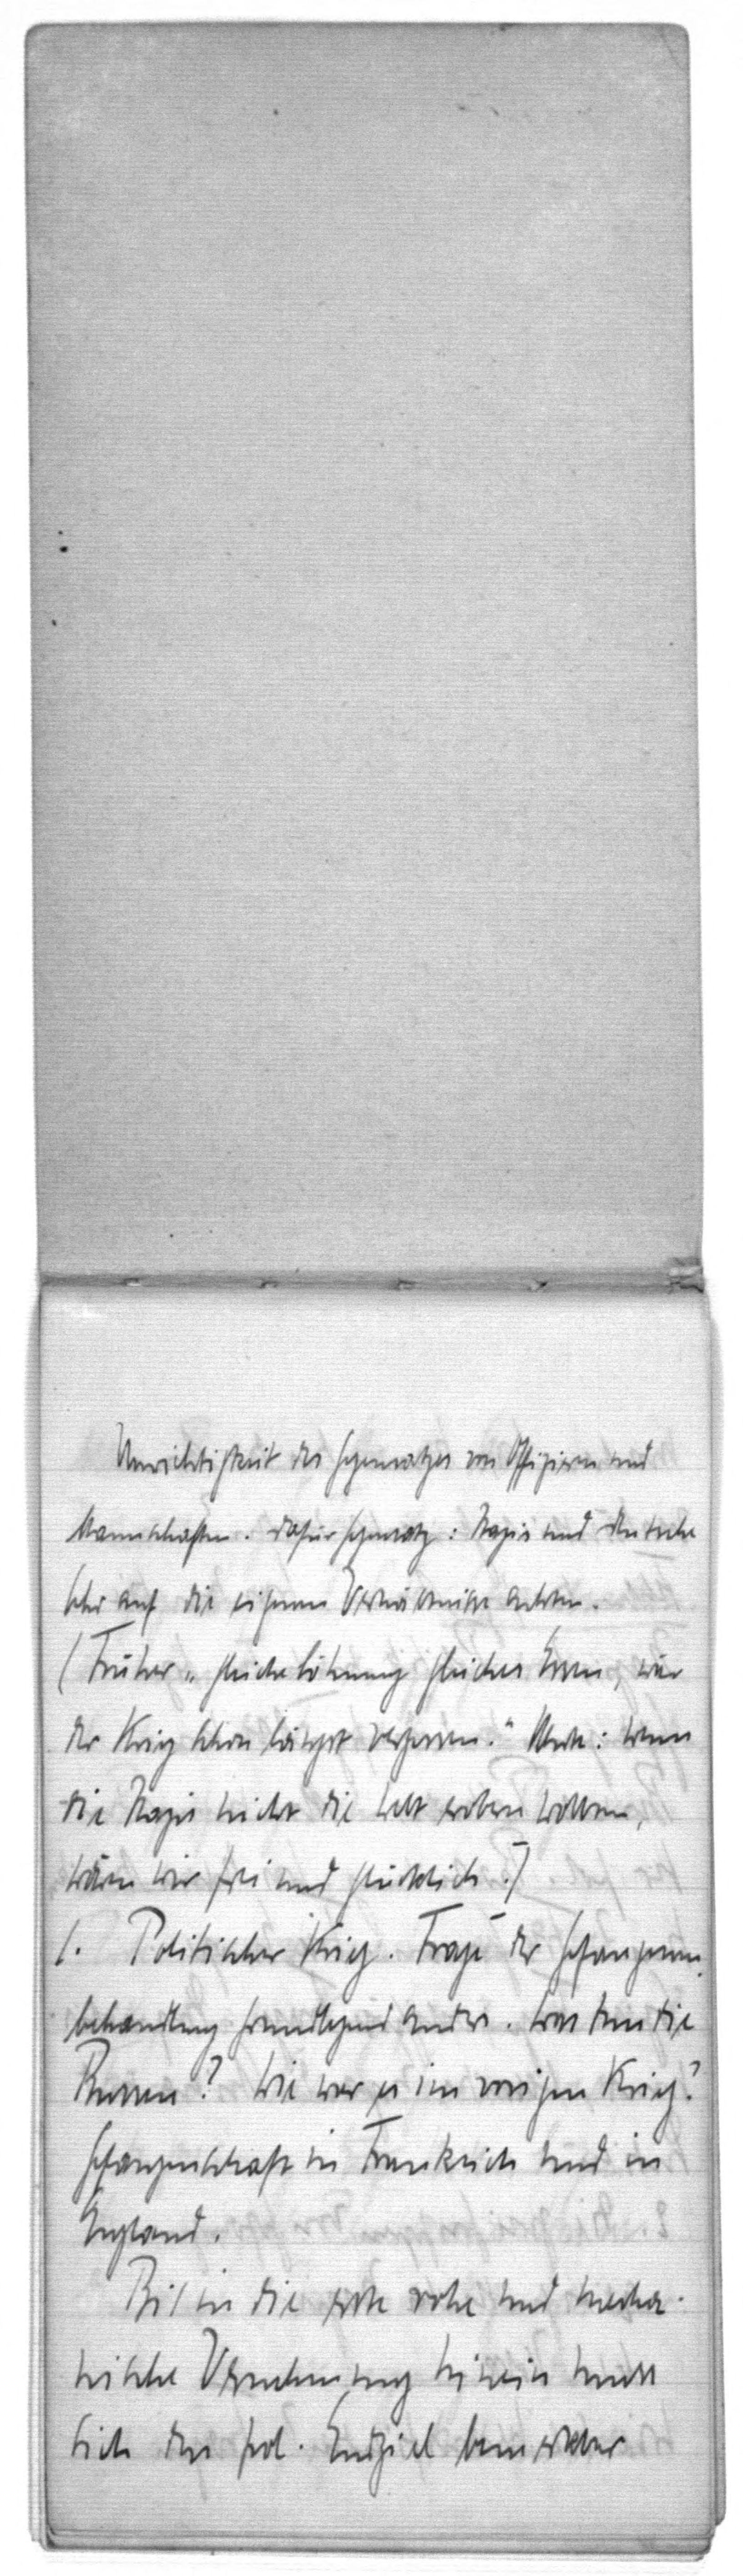 Unwichtigkeit des Gegensatzes von Offizieren und
Mannschaften. Dafür Gegensatz: Nazis und Deutsche
Sehr auf die eigenen Verhältnisse achten.
(Früher „gleiche Löhnung gleiches Essen, wär
der Krieg schon längst vergessen." Neu: wenn
die Nazis nicht die Welt erobern wollten,
wären wir frei und glücklich.)
1. Politischer Krieg. Frage der Gefangenen-
behandlung grundlegend anders. Was tun die
Russen? Wie war es im vorigen Krieg?
Gefangenschaft in Frankreich und in
England.
Bis in die erste rohe und mecha-
nische Vernehmung hinein muss
sich das pol. Endziel bemerkbar